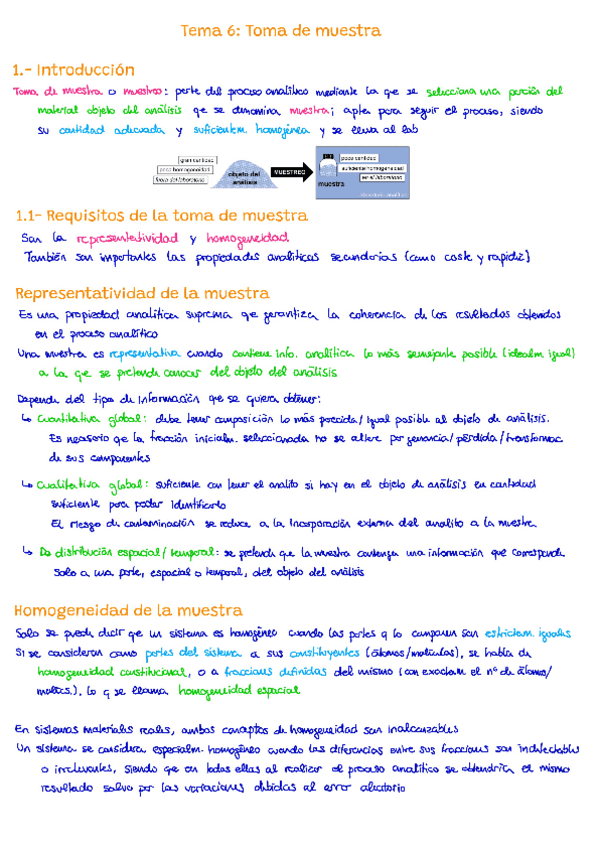 Tema 6: Toma de muestra
1.- Introducción
Toma de muestra o muestreo: parte del proceso analítico mediante la que se selecciona una porción del
material objeto del análisis que se denomina muestra; apta para seguir el proceso, siendo
su cantidad adecuada y suficientem. homogénea y se lleva al lab
gran cantidad
poca homogeneidad
fuera del laboratorio
objeto del
análisis
MUESTREO
poca cantidad
suficiente homogeneidad
en el laboratorio
muestra
1.1- Requisitos de la toma de muestra
Son la representatividad y homogeneidad.
También son importantes las propiedades analíticas secundarias (como coste y rapidez)
Representatividad de la muestra
Es una propiedad analítica suprema que garantiza la coherencia de los resultados obtenidos
en el proceso analítico
Una muestra es representativa cuando contiene info. analítica lo más semejante posible (idealm igual)
a la que se pretende conocer del objeto del análisis
Depende del tipo de información que se quiera obtener:
↳ Cuantitativa global: debe tener composición lo más parecida/igual posible al objeto de análisis.
Es necesario que la fracción inicialm. seleccionada no se altere por ganancia/pérdida/transformac
de sus componentes
↳ Cualitativa global: suficiente con tener el analito si hay en el objeto de análisis en cantidad
suficiente para poder identificarlo
El riesgo de contaminación se reduce a la incorporación externa del analito a la muestra
↳ De distribución espacial/temporal: se pretende que la muestra contenga una información que corresponda
solo a una parte, espacial o temporal, del objeto del análisis
Homogeneidad de la muestra
Solo se puede decir que un sistema es homogéneo cuando las partes q lo componen son estrictam. iguales
Si se consideran como partes del sistema a sus constituyentes (átomos/moléculas), se habla de
homogeneidad constitucional, o a fracciones definidas del mismo (con exactam el nº de átomos/
moléc.), lo q se llama homogeneidad espacial
En sistemas materiales reales, ambos conceptos de homogeneidad son inalcanzables
Un sistema se considera especialm. homogéneo cuando las diferencias entre sus fracciones son indetectables
o irrelevantes, siendo que en todas ellas al realizar el proceso analítico se obtendría el mismo
resultado salvo por las variaciones debidas al error aleatorio